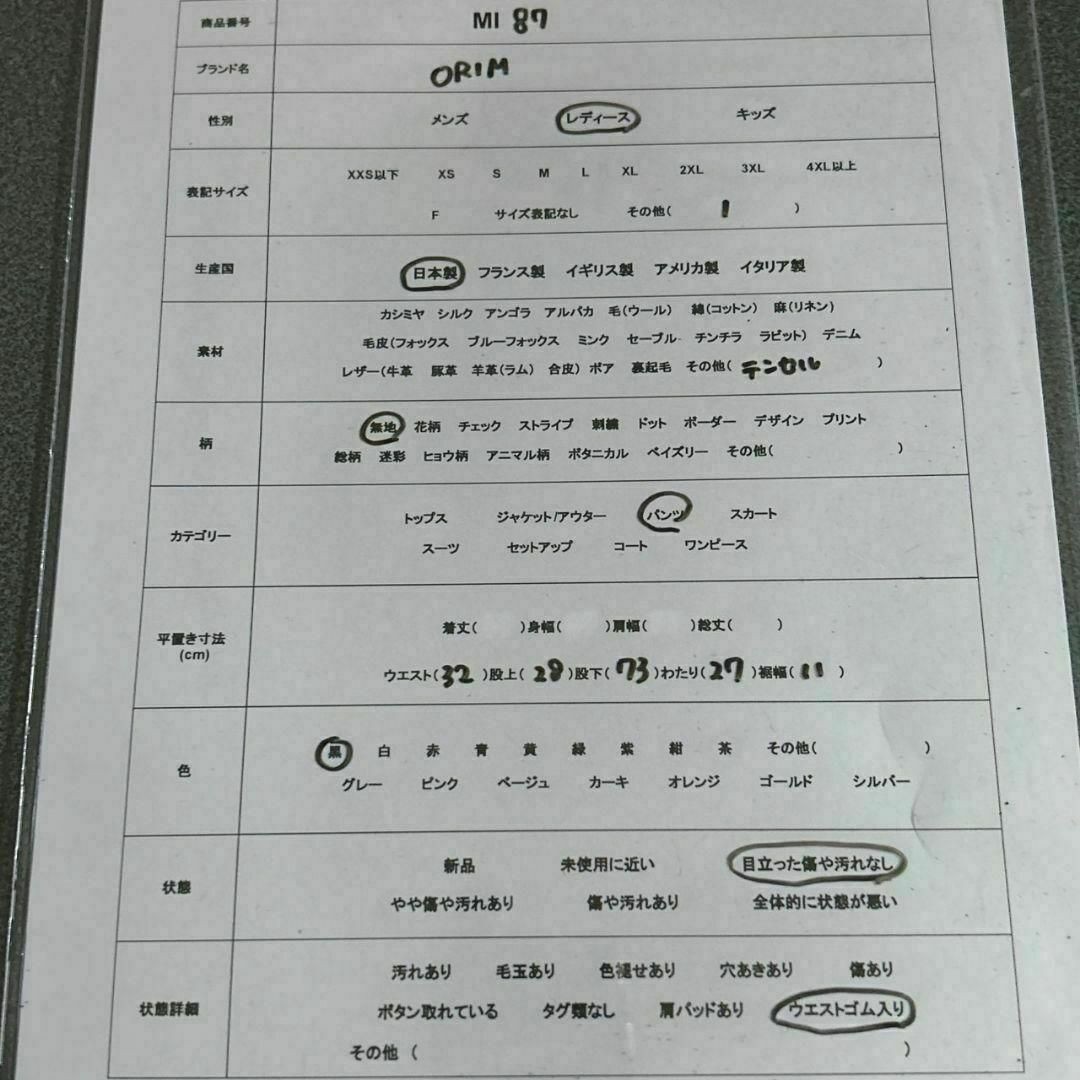 商品番号 MI 87
ブランド名 ORIM
性別 メンズ レディース キッズ
表記サイズ XXS以下 XS S M L XL 2XL 3XL 4XL以上
F サイズ表記なし その他( 1 )
生産国 日本製 フランス製 イギリス製 アメリカ製 イタリア製
素材 カシミヤ シルク アンゴラ アルパカ 毛(ウール) 綿(コットン) 麻(リネン)
毛皮(フォックス ブルーフォックス ミンク セーブル チンチラ ラビット) デニム
レザー(牛革 豚革 羊革(ラム) 合皮) ボア 裏起毛 その他( テンセル )
柄 無地 花柄 チェック ストライプ 刺繍 ドット ボーダー デザイン プリント
総柄 迷彩 ヒョウ柄 アニマル柄 ボタニカル ペイズリー その他( )
カテゴリー トップス ジャケット/アウター パンツ スカート
スーツ セットアップ コート ワンピース
平置き寸法 (cm) 着丈( )身幅( )肩幅( )総丈( )
ウエスト( 32 )股上( 28 )股下( 73 )わたり( 27 )裾幅( 11 )
色 黒 白 赤 青 黄 緑 紫 紺 茶 その他( )
グレー ピンク ベージュ カーキ オレンジ ゴールド シルバー
状態 新品 未使用に近い 目立った傷や汚れなし
やや傷や汚れあり 傷や汚れあり 全体的に状態が悪い
状態詳細 汚れあり 毛玉あり 色褪せあり 穴あきあり 傷あり
ボタン取れている タグ類なし 肩パッドあり ウエストゴム入り
その他 ( )